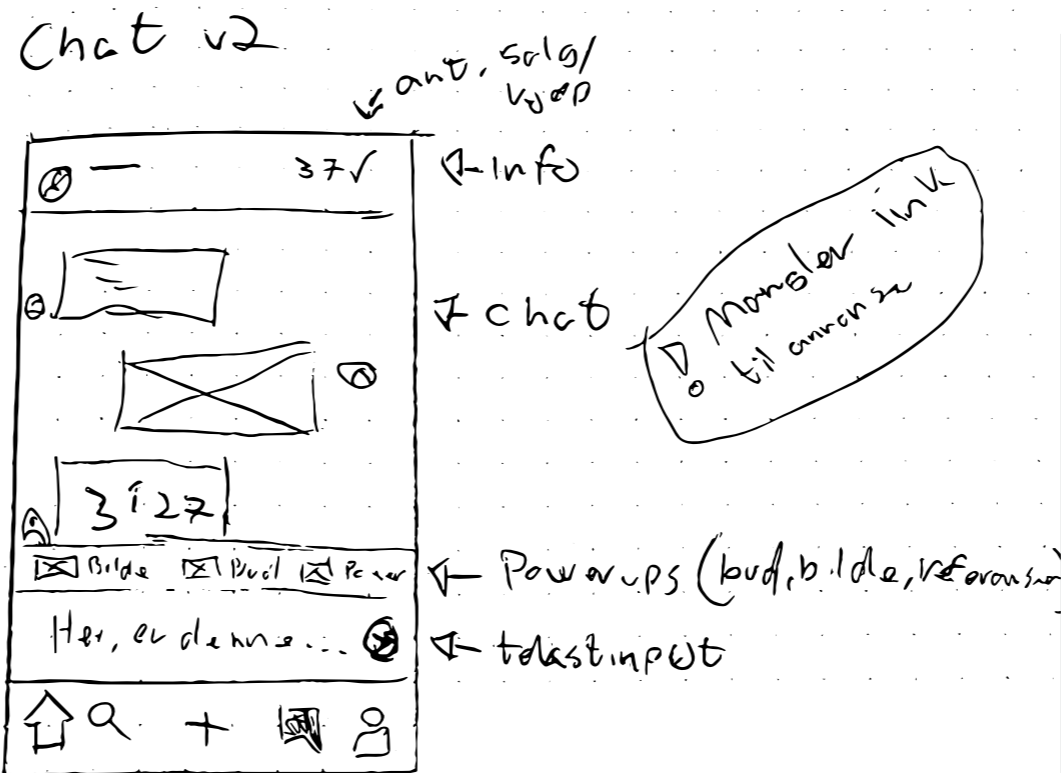 Chat v2
ant. salg/
37✓
Info
Chat
Mangler link
til annonse
3i27
Bilde Bud
Powerups (bud, bilde, referanse
Hei, er denne...